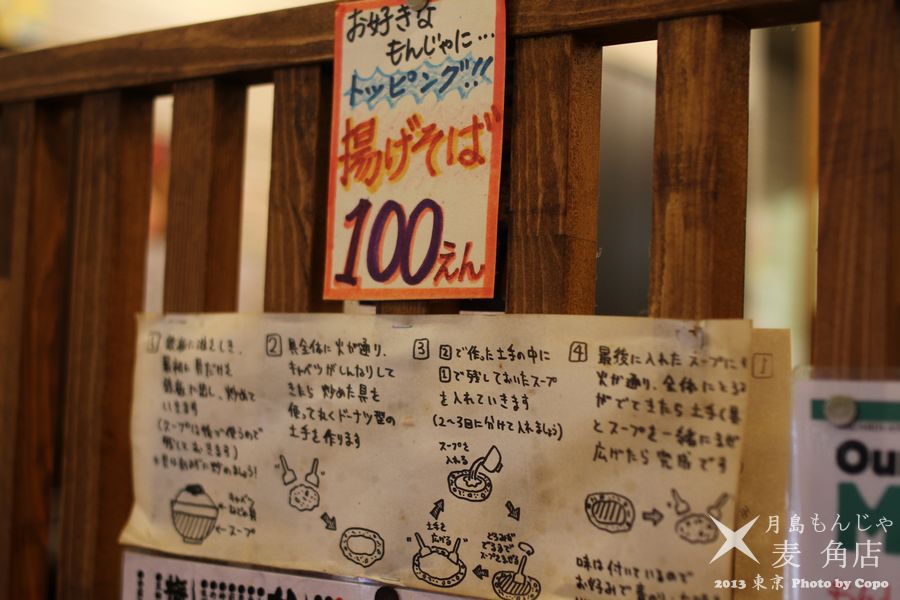 お好きな
もんじゃに…
トッピング!!
揚げそば
100えん
1 鉄板に油をしき、
最初に具だけを
鉄板に出し、炒めて
いきます
(スープは後で使うので
残しておきます)
キャベツ
など具
スープ
2 具全体に火が通り、
キャベツがしんなりして
きたら炒めた具を
使って丸くドーナツ型の
土手を作ります
3 2で作った土手の中に
1で残しておいたスープ
を入れていきます
(2〜3回に分けて入れましょう)
スープを
入れる
土手を
広げる
とろみが
でるまで
スープをまぜる
4 最後に入れたスープにも
火が通り、全体にとろみ
がでてきたら土手(具
とスープを一緒にまぜ
広げたら完成です
味は付いているので
Ou
M
月島もんじゃ
麦 角店
2013 東京 Photo by Copo